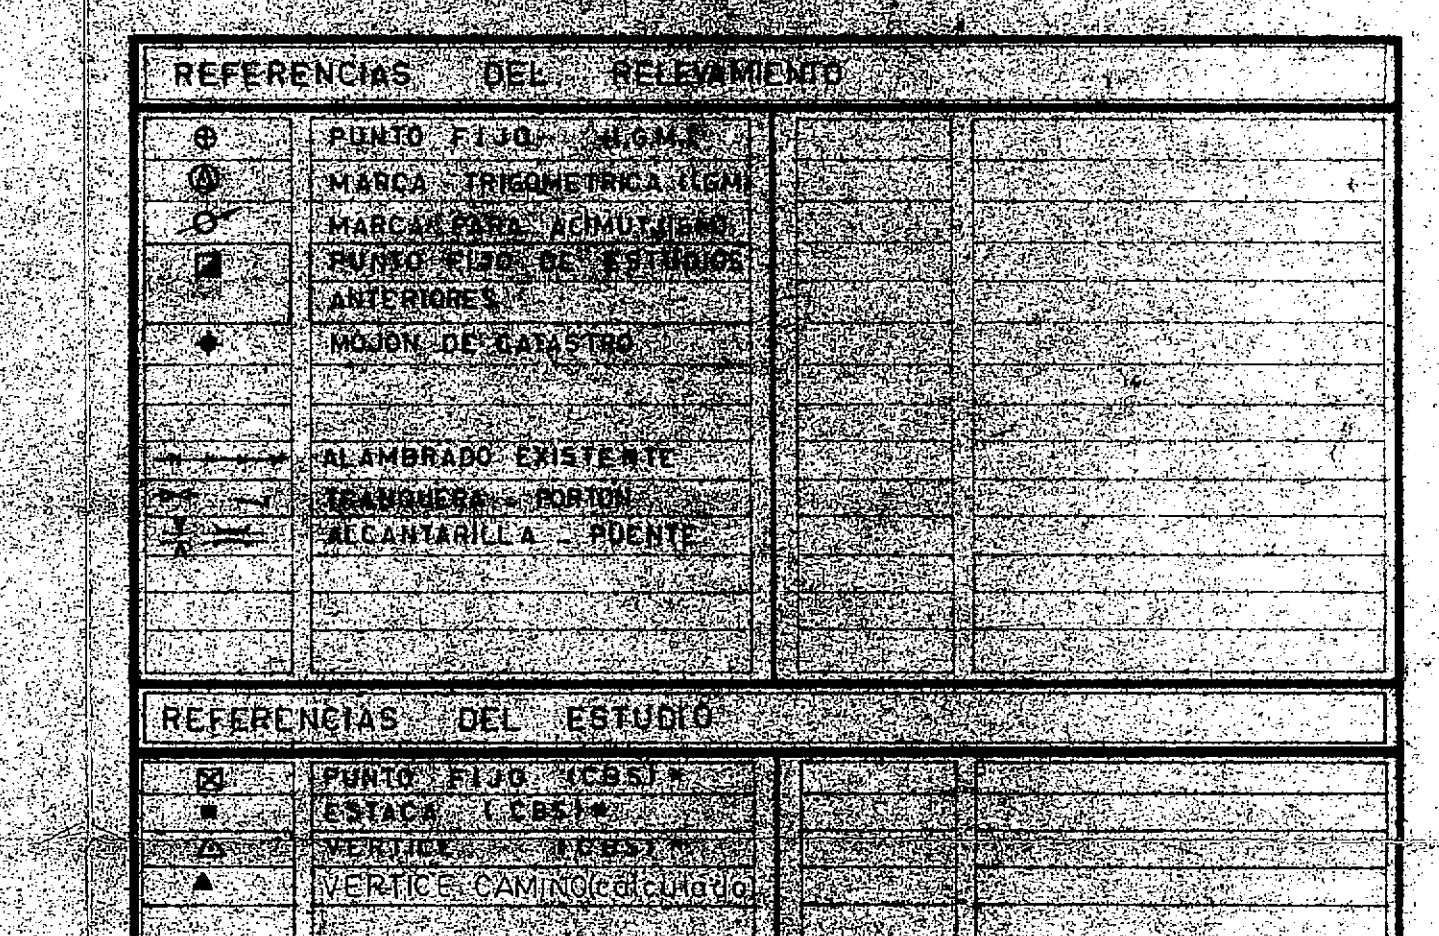 REFERENCIAS DEL RELEVAMIENTO
PUNTO FIJO
MARCA TRIGOMETRICA (IGM)
MARCA PARA ACIMUT
PUNTO FIJO DE ESTUDIOS
ANTERIORES
MOJON DE CATASTRO
ALAMBRADO EXISTENTE
TRANQUERA - PORTON
ALCANTARILLA - PUENTE
REFERENCIAS DEL ESTUDIO
PUNTO FIJO (CBS) *
ESTACA (CBS) *
VERTICE (CBS) *
VERTICE CAMINO (calculado)